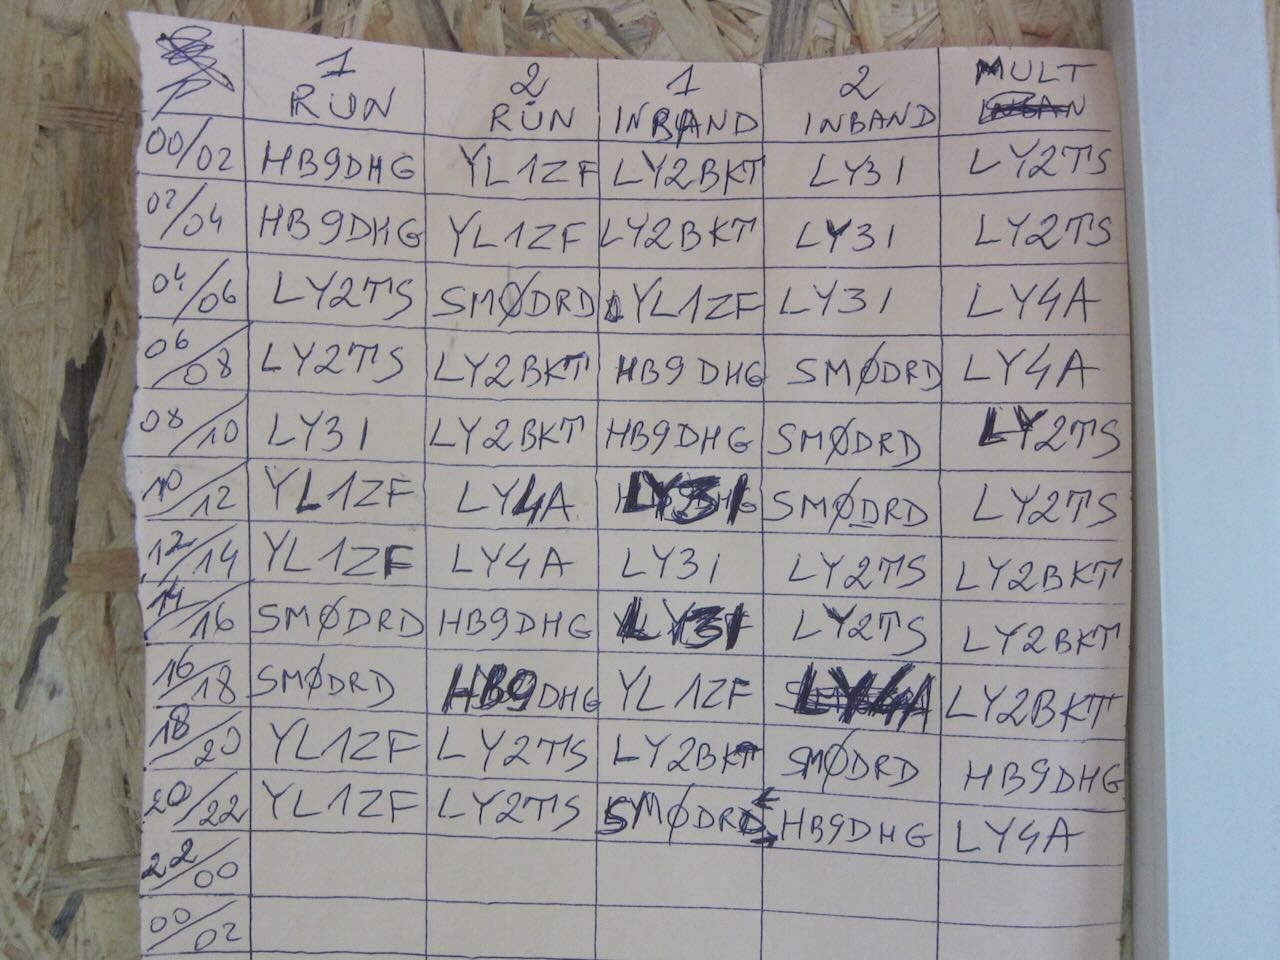 1 RUN 2 RUN 1 INBAND 2 INBAND MULT
00/02 HB9DHG YL1ZF LY2BKT LY3I LY2TS
02/04 HB9DHG YL1ZF LY2BKT LY3I LY2TS
04/06 LY2TS SMØDRD YL1ZF LY3I LY4A
06/08 LY2TS LY2BKT HB9DHG SMØDRD LY4A
08/10 LY3I LY2BKT HB9DHG SMØDRD LY2TS
10/12 YL1ZF LY4A LY3I SMØDRD LY2TS
12/14 YL1ZF LY4A LY3I LY2TS LY2BKT
14/16 SMØDRD HB9DHG LY3I LY2TS LY2BKT
16/18 SMØDRD HB9DHG YL1ZF LY4A LY2BKT
18/20 YL1ZF LY2TS LY2BKT SMØDRD HB9DHG
20/22 YL1ZF LY2TS SMØDRD HB9DHG LY4A
22/00
00/02